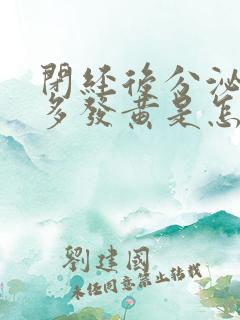 閉經後分泌
多發黃是怎
劉建國
未经同意禁止转载